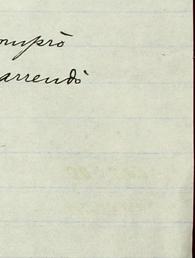 ompró
arrendó